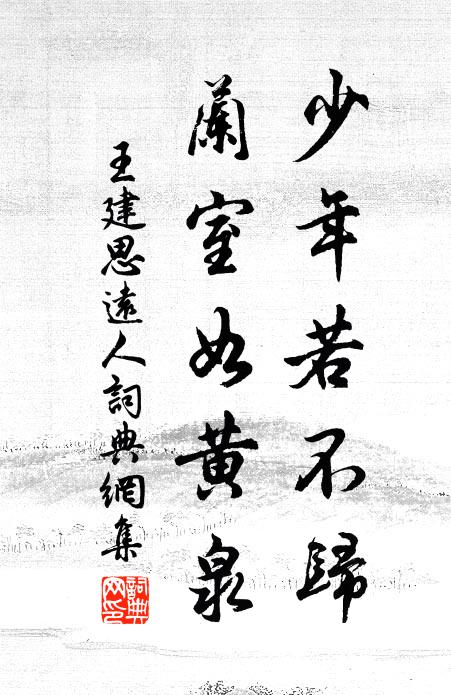 少年若不歸
蘭室如黃泉
王建思遠人詞典網集
詞典网印